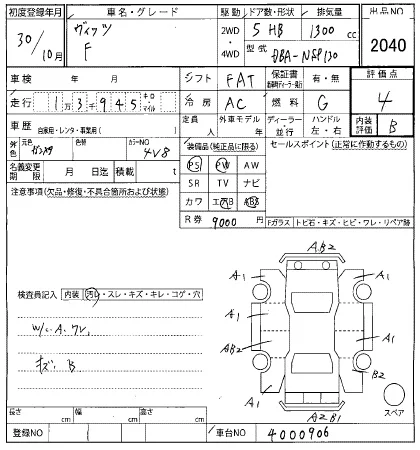 初度登録年月 車名・グレード 駆動 ドア数・形状 排気量 出品NO
30/10月 ヴィッツ F 2WD ・ 4WD 5 HB 1300 cc 2040
型式 DBA-NSP130
車検 年 月 シフト FAT 保証書 有・無 評価点
走行 1万3千945 キロ・マイル 冷房 AC 燃料 G 4
車歴 自家用・レンタ・事業用( ) 定員 人 外車モデル 年 ディーラー・並行 ハンドル 左・右 内装評価 B
外色 元色 色替 カラーNO 4V8
名義変更期限 月 日迄 積載 t
注意事項(欠品・修復・不具合箇所および状態)
装備品(純正品に限る) セールスポイント(正常に作動するもの)
PS PW AW
SR TV ナビ
カワ エアB ABS
R券 9000 円
Fガラス トビ石・キズ・ヒビ・ワレ・リペア跡
検査員記入 内装 汚レ・スレ・キズ・キレ・コゲ・穴
キズ B
AB2
A1 A1
A1 A1
AB2 A1
A1 B2
A2B1
スペア
長さ cm 幅 cm 高さ cm
登録NO 車台NO 4000906